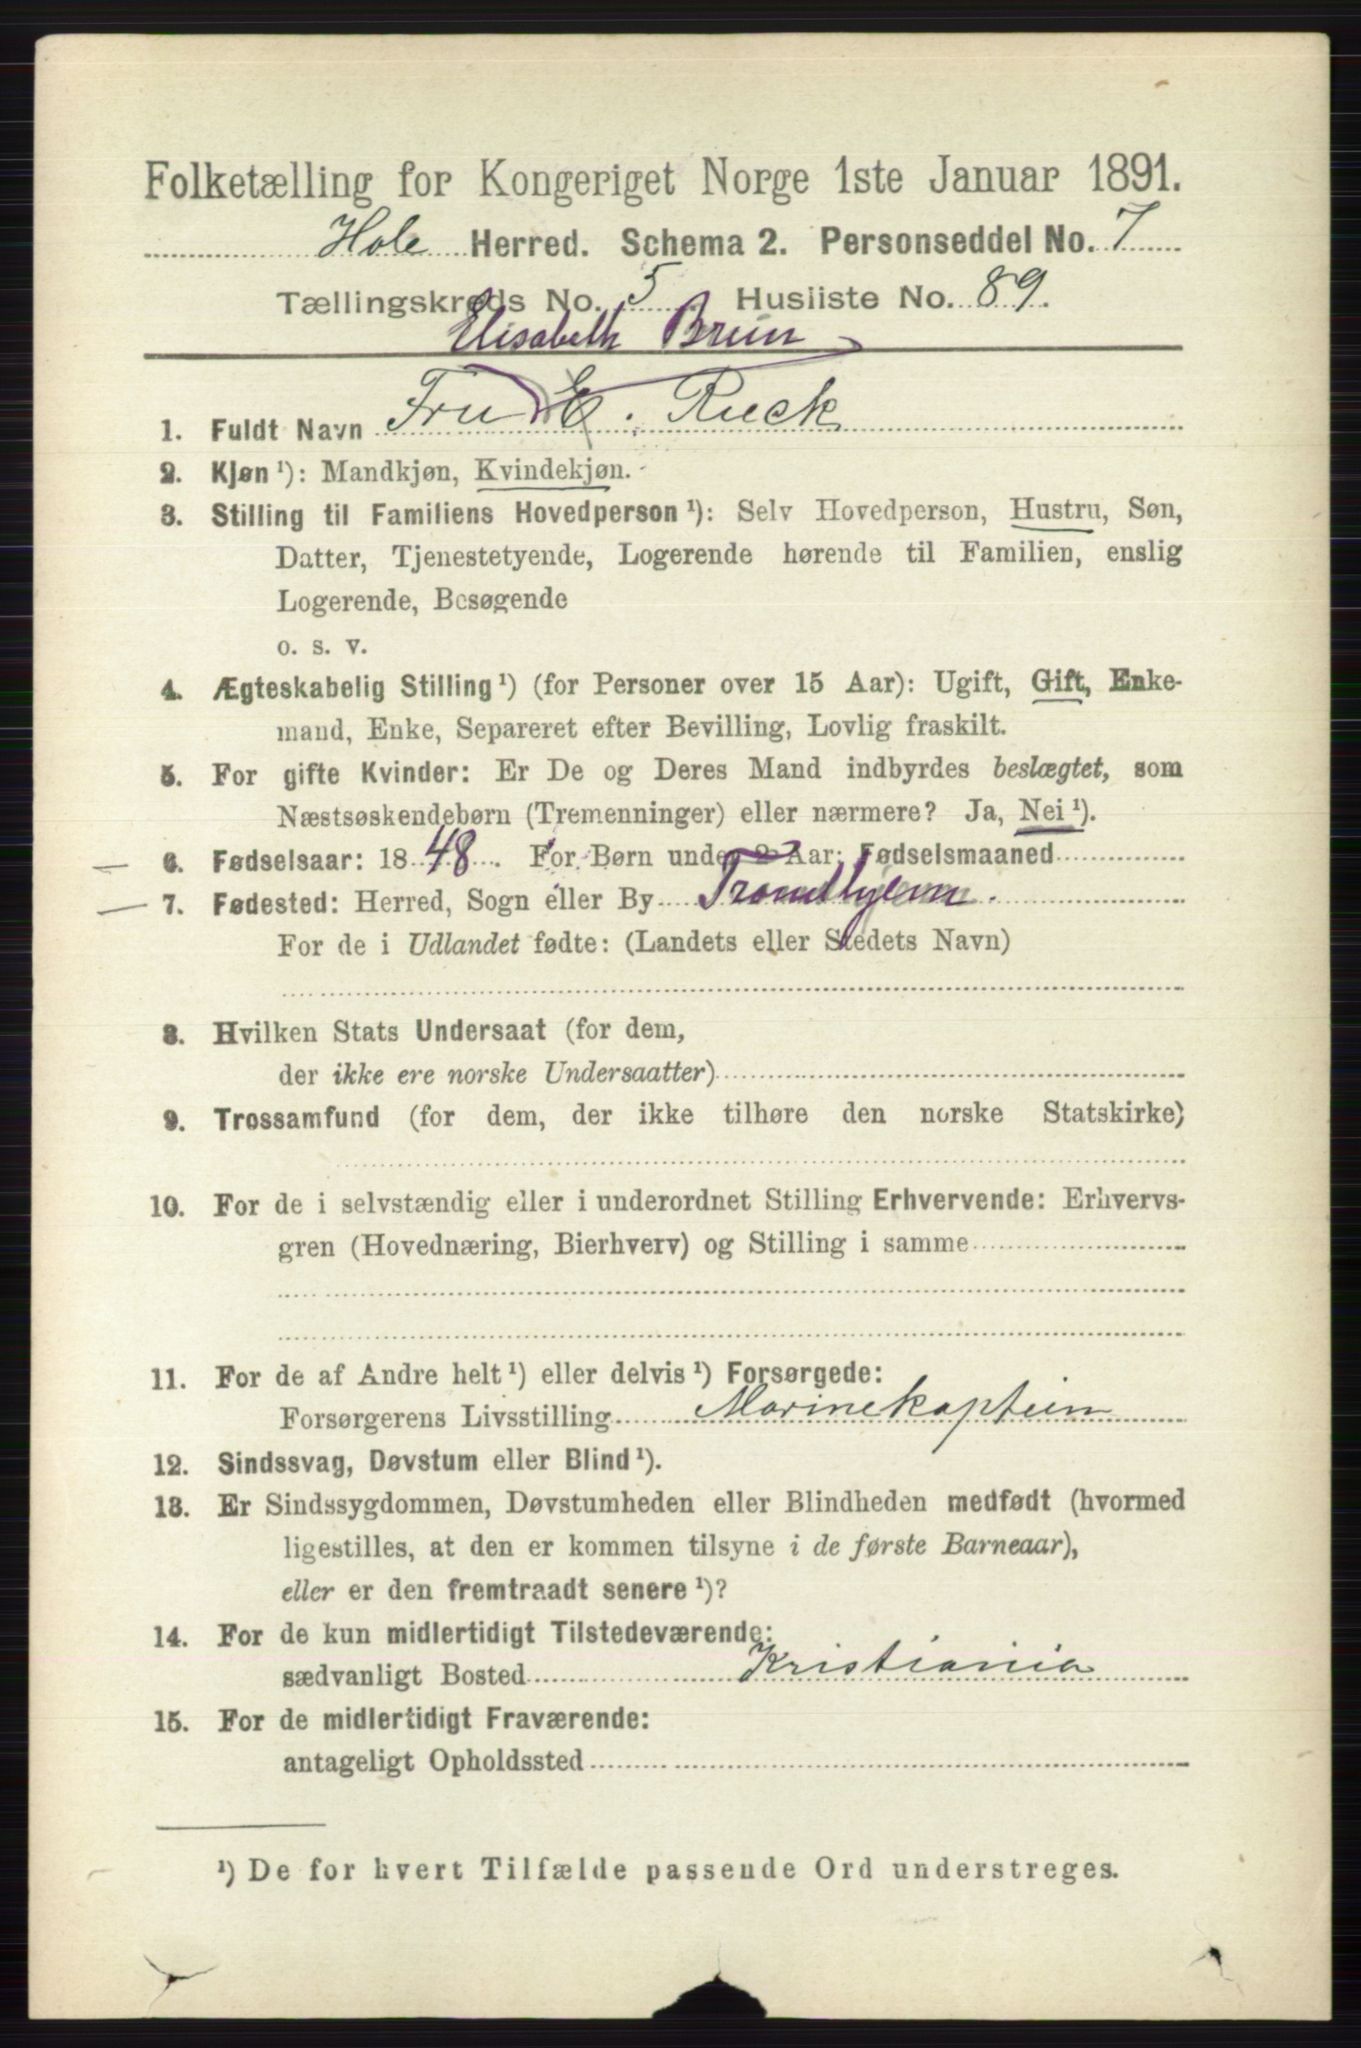 Folketælling for Kongeriget Norge 1ste Januar 1891.
Hole Herred. Schema 2. Personseddel No. 7
Tællingskreds No. 5 Husliste No. 89.
Elisabeth Brun
1. Fuldt Navn Fru E. Rieck
2. Kjøn ¹): Mandkjøn, Kvindekjøn.
3. Stilling til Familiens Hovedperson ¹): Selv Hovedperson, Hustru, Søn,
Datter, Tjenestetyende, Logerende hørende til Familien, enslig
Logerende, Besøgende
o. s. v.
4. Ægteskabelig Stilling ¹) (for Personer over 15 Aar): Ugift, Gift, Enke-
mand, Enke, Separeret efter Bevilling, Lovlig fraskilt.
5. For gifte Kvinder: Er De og Deres Mand indbyrdes beslægtet, som
Næstsøskendebørn (Tremenninger) eller nærmere? Ja, Nei ¹).
6. Fødselsaar: 1848. For Børn under 2 Aar: Fødselsmaaned
7. Fødested: Herred, Sogn eller By Trondhjem.
For de i Udlandet fødte: (Landets eller Stedets Navn)
8. Hvilken Stats Undersaat (for dem,
der ikke ere norske Undersaatter)
9. Trossamfund (for dem, der ikke tilhøre den norske Statskirke)
10. For de i selvstændig eller i underordnet Stilling Erhvervende: Erhvervs-
gren (Hovednæring, Bierhverv) og Stilling i samme
11. For de af Andre helt ¹) eller delvis ¹) Forsørgede:
Forsørgerens Livsstilling Marinekaptein
12. Sindssvag, Døvstum eller Blind ¹).
13. Er Sindssygdommen, Døvstumheden eller Blindheden medfødt (hvormed
ligestilles, at den er kommen tilsyne i de første Barneaar),
eller er den fremtraadt senere ¹)?
14. For de kun midlertidigt Tilstedeværende:
sædvanligt Bosted Kristiania
15. For de midlertidigt Fraværende:
antageligt Opholdssted
¹) De for hvert Tilfælde passende Ord understreges.